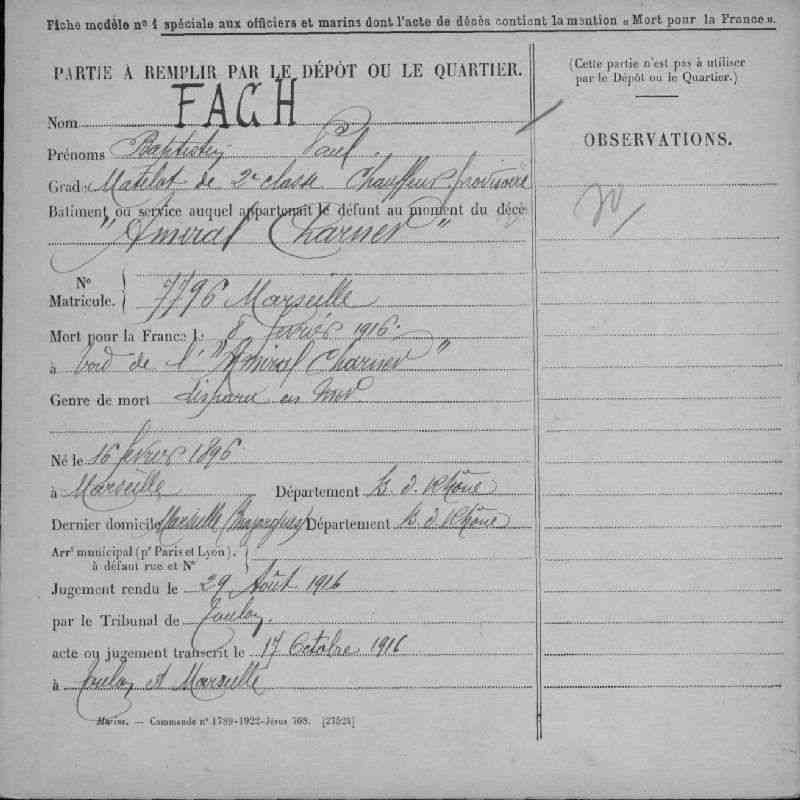 Fiche modèle nº 1 spéciale aux officiers et marins dont l'acte de décès contient la mention « Mort pour la France ».
PARTIE A REMPLIR PAR LE DÉPÔT OU LE QUARTIER.
Nom FACH
Prénoms Baptistin Paul.
Grade Matelot de 2e classe Chauffeur provisoire
Bâtiment ou service auquel appartenait le défunt au moment du décès
"Amiral Charner"
Nº
Matricule. 7796 Marseille
Mort pour la France le 8 février 1916.
à bord de l'"Amiral Charner"
Genre de mort disparu en mer
Né le 16 février 1896
à Marseille Département B. d. Rhône
Dernier domicile Marseille Département B. d. Rhône
Arrt municipal (pr Paris et Lyon),
à défaut rue et Nº
Jugement rendu le 29 Août 1916
par le Tribunal de Toulon.
acte ou jugement transcrit le 17 Octobre 1916
à Toulon et Marseille
Marine. — Commande nº 1789-1922-Jérus 768. [27523]
(Cette partie n'est pas à utiliser
par le Dépôt ou le Quartier.)
OBSERVATIONS.